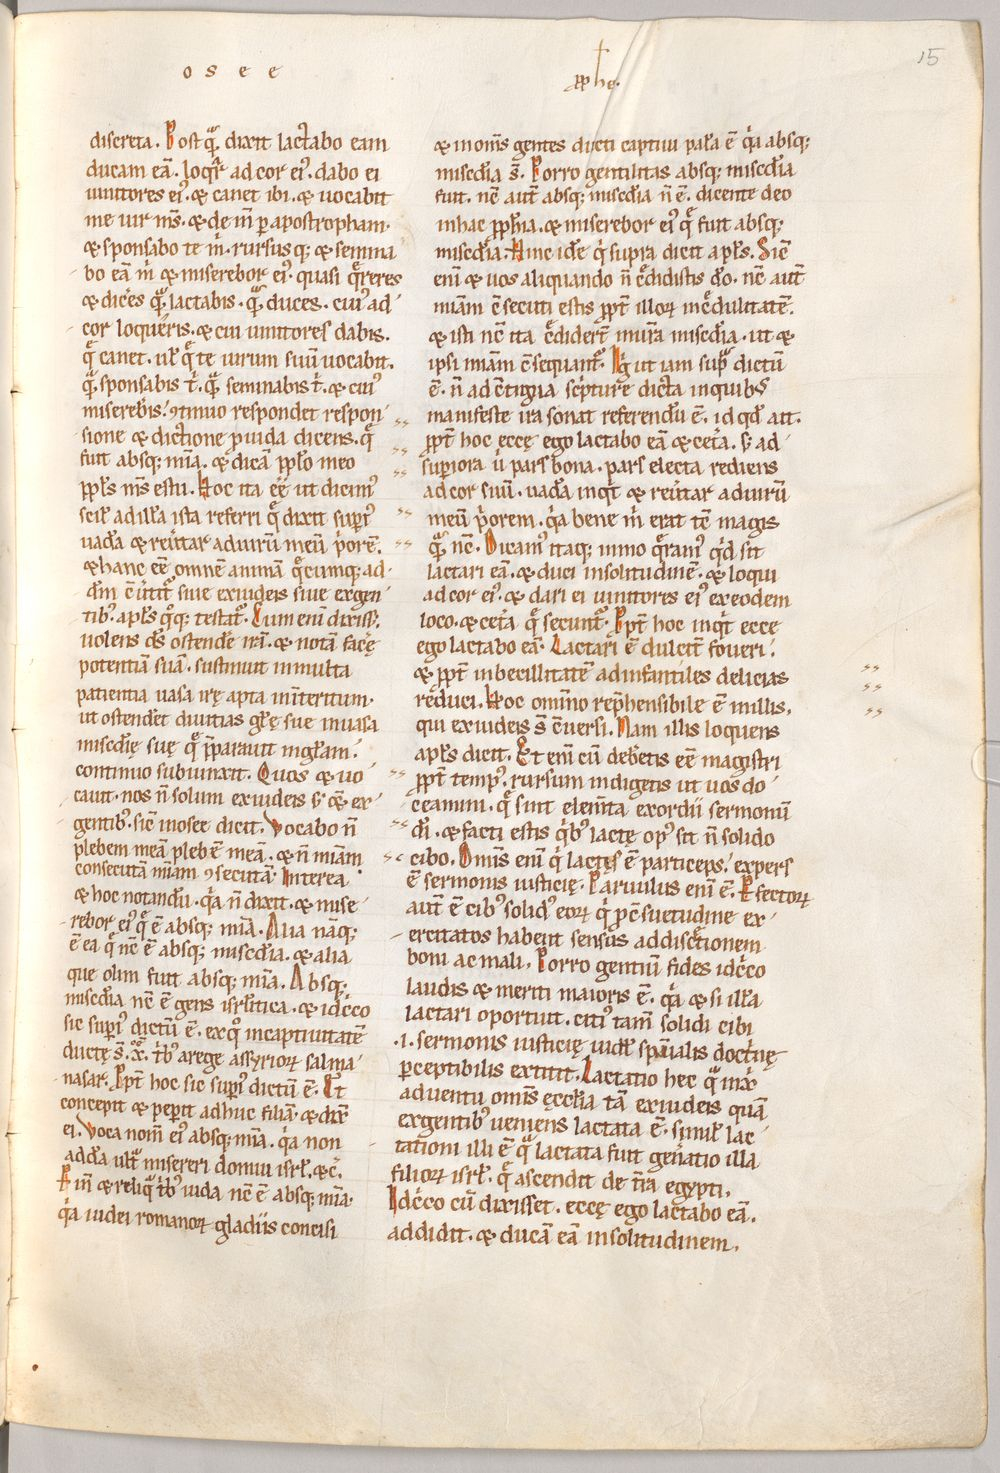 osee
pphe.
15
discreta. Postq̃ dixit lactabo eam
ducam eã. loqr̃ ad cor ei'. dabo ei
vinitores ei'. & canet ibi. & vocabit
me vir m̃s. & dẽin p apostropham.
& sponsabo te m̃. rursusq; & semina
bo eã m̃ & miserebor ei'. quasi q̃reres
& dicẽs q̃ lactabis. q̃ duces. cui' ad
cor loqueris. & cui vinitores dabis.
q̃ canet. ul' q̃ te virum suũ vocabit.
q̃ sponsabis t̃. q̃ seminabis t̃. & cui'
misereb̃is. 9tinuo respondet respon
sione & dictione pvida dicens. q̃
fuit absq; m̃ia. & dicã pp̃lo meo
pp̃ls m̃s es tu. Hoc ita eẽ ut dicim'
scil' ad illa ista referri q̃ dixit sup̃i'
vadã & reṽtar ad virũ meũ p̃orẽ.
& hanc eẽ omnẽ animã q̃cumq; ad
dñm c̃ṽtit̃ sive ex iudeis sive ex gen
tib'. apl̃s q̃q; testat̃. Cum eni dixiss̃.
volens ds̃ ostende irã. & notã facẽ
potentiã suã. sustinuit in multa
patientia vasa irę apta in ĩteritum.
ut ostendet divitias glẽ sue in vasa
miscd̃ię suę q̃ p̃paravit in gl̃am.
continuo subiunxit. Quos & vo
cavit. nos ñ solum ex iudeis s; & ex
gentib'. sic in osee dicit. Vocabo ñ
plebem meã plebẽ meã. & ñ miãm
consecutã miãm 9secutã. Interea
& hoc notandũ. q̃a ñ dixit. & mise
rebor ei' q̃ ẽ absq; m̃ia. Alia nãq;
ẽ ea q̃ nc̃ ẽ absq; miscd̃ia. & alia
que olim fuit absq; m̃ia. Absq;
miscd̃ia nc̃ ẽ gens isrl̃itica. & idc̃co
sic sup̃i' dictũ ẽ. ex q̃o in captivitatẽ
ductę s̃. x̃. t̃b' a rege assyrioꝝ salma
nasar. Ppt̃ hoc sic sup̃i' dictũ ẽ. Et
concepit & pep̃it adhuc filiã. & dix̃
ei. Voca nom̃ ei' absq; m̃ia. q̃a non
addã ult̃ misereri domui isrl̃. &c̃.
P̃in & reliq̃ t̃b' iuda nc̃ ẽ absq; m̃ia.
q̃a iudei romanoꝝ gladiis concisi
& in om̃s gentes ducti captivi pal̃a ẽ q̃a absq;
miscd̃ia s̃. Porro gentilitas absq; miscd̃ia
fuit. nc̃ aut̃ absq; miscd̃ia ñ ẽ. dicente deo
in hac pp̃hia. & miserebor ei' q̃ fuit absq;
miscd̃ia. Hinc idẽ q̃ supra dicit apl̃s. Sic̃
eni & vos aliquando ñ c̃didistis dõ. nc̃ aut̃
miãm c̃secuti estis ppt̃ illoꝝ inc̃dulitatẽ.
& isti nc̃ ita c̃dider̃t in vr̃a miscd̃ia. ut &
ipsi miãm c̃sequant̃. Ig̃ ut iam sup̃ dictũ
ẽ. ñ ad c̃tigua sc̃pture dicta in quib'
manifeste ira sonat referendũ ẽ. id qd̃ ait.
ppt̃ hoc eccę ego lactabo eã & cet̃a. s; ad
sup̃iora ũ pars bona. pars electa rediens
ad cor suũ. vadã inqt̃ & reṽtar ad virũ
meũ p̃orem. q̃a bene m̃ erat tc̃ magis
q̃ nc̃. Dicam' itaq; immo q̃ram' q̃d sit
lactari eã. & duci in solitudinẽ. & loqui
ad cor ei'. & dari ei vinitores ei' ex eodem
loco. & cet̃a q̃ secunt̃. Ppt̃ hoc inqt̃ eccę
ego lactabo eã. Lactari ẽ dulcit̃ foveri.
& ppt̃ inbecillitatẽ ad infantiles delicias
rẽduci. Hoc omĩno rep̃hensibile ẽ in illis.
qui ex iudeis s̃ c̃versi. Nam illis loquens
apl̃s dicit. Et eni cũ deb̃etis eẽ magistri
ppt̃ temp'. rursum indigetis ut vos do
ceamini. q̃ sint elem̃ta exordii sermonũ
dĩ. & facti estis q̃b' lactę op' sit ñ solido
cibo. Om̃is eni q̃ lactęs ẽ particeps. expers
ẽ sermonis iusticię. Parvulus eni ẽ. P̃fectoꝝ
aut̃ ẽ cib' solid' eoꝝ q̃ p c̃suetudine ex
ercitatos habent sensus ad disc̃tionem
boni ac mali. Porro gentiũ fides idc̃co
laudis & meriti maioris ẽ. q̃a & si illa
lactari oportuit. citi' tam̃ solidi cibi
.i. sermonis iusticię vidl̃ sp̃ualis doct̃nę
pceptibilis extitit. Lactatio hec q̃ in x̃
adventu om̃is ęccl̃ia tã ex iudeis quã
ex gentib' veniens lactata ẽ. simil' lac
tationi illi ẽ q̃ lactata fuit gen̄atio illa
filioꝝ isrl̃. q̃ ascendit de t̃ra egypti.
Idc̃co cũ dixisset. eccę ego lactabo eã.
addidit. & ducã eã in solitudinem.